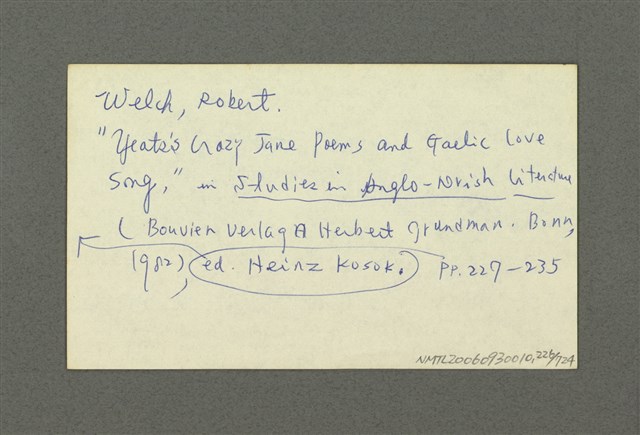 Welch, Robert.
"Yeats's Crazy Jane Poems and Gaelic Love
Song," in Studies in Anglo-Irish Literature
( Bouvier Verlag A Herbert Grundman. Bonn,
1982), ed. Heinz Kosok. pp. 227-235
NMTL20060930010,226/724